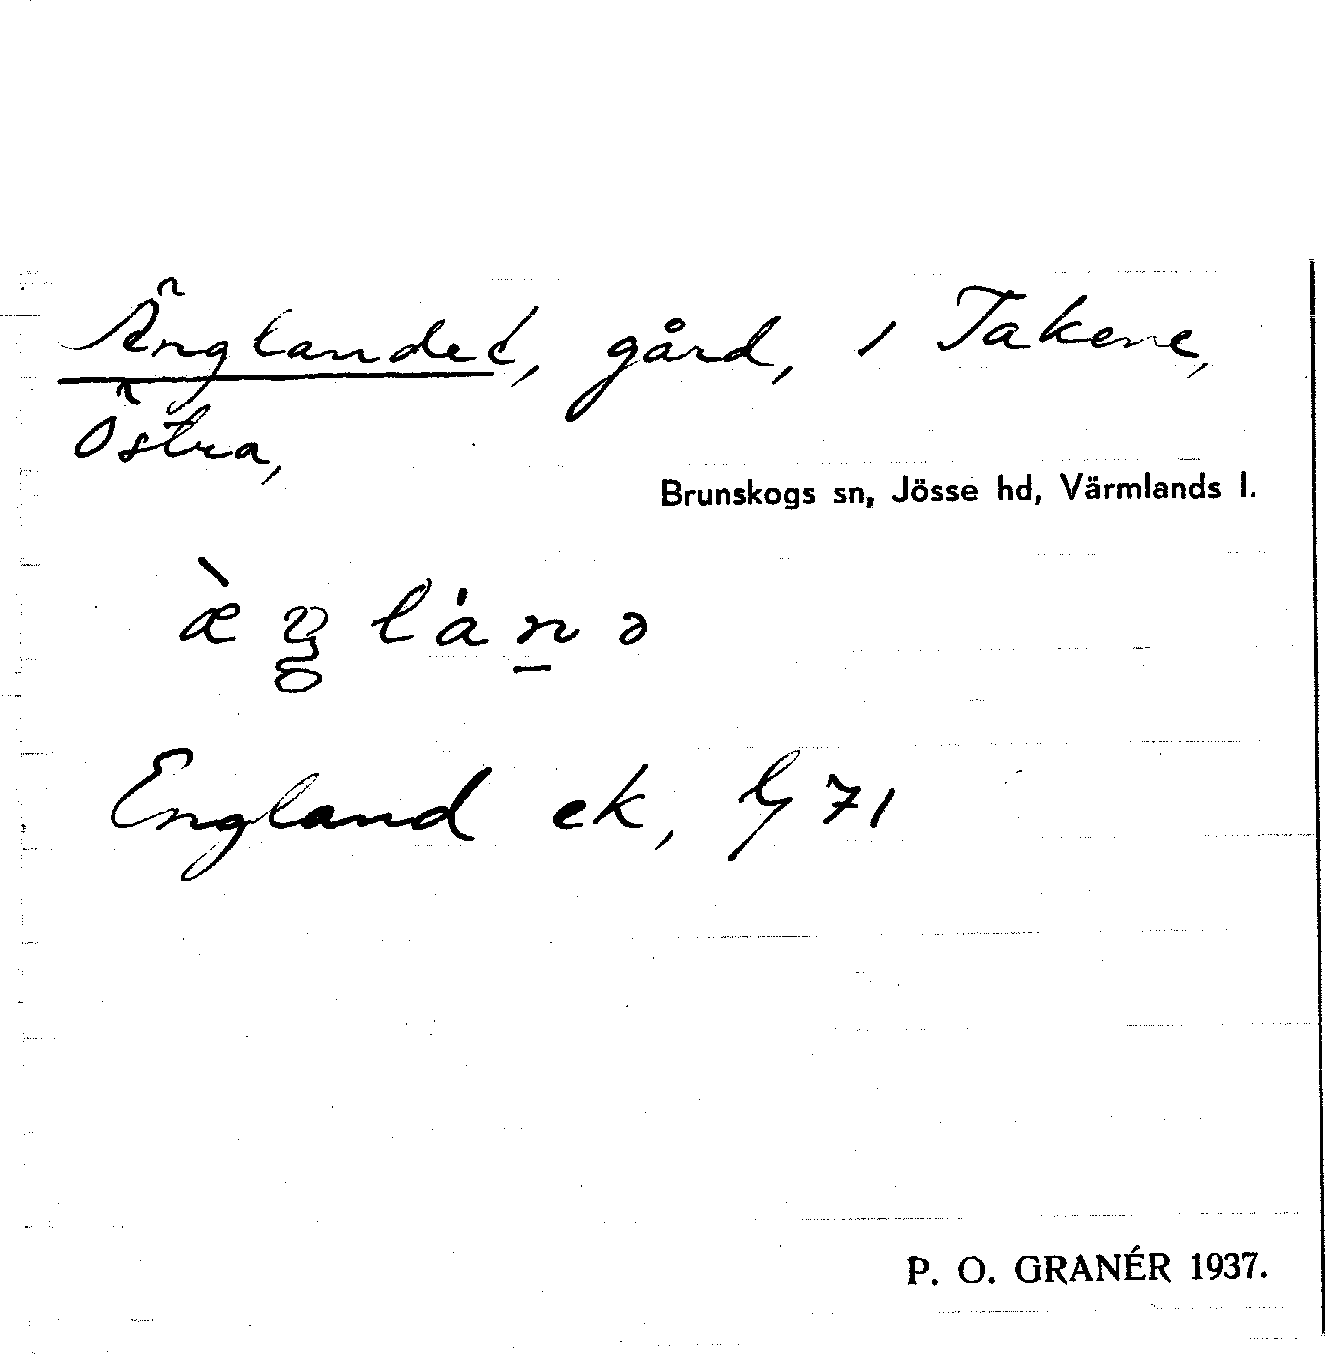 Änglandet, gård, i Takene,
Östra,
Brunskogs sn, Jösse hd, Värmlands l.
England ek, 71
P. O. GRANÉR 1937.